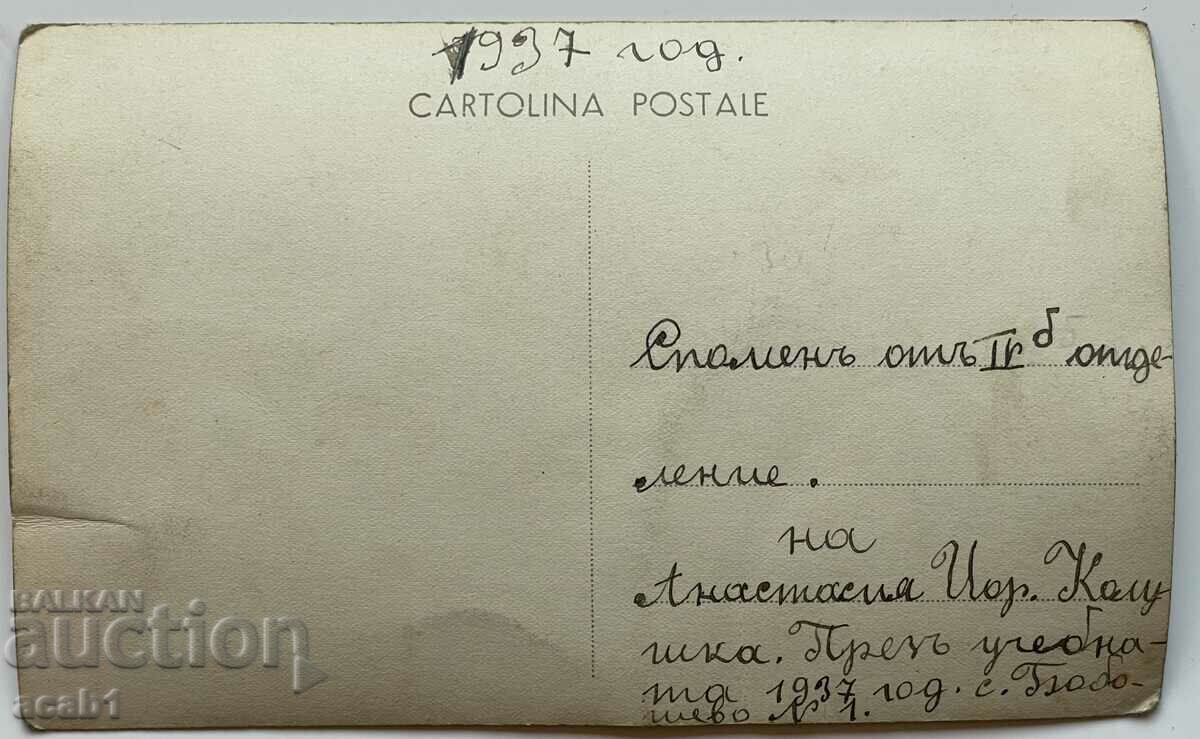 1937 год.
CARTOLINA POSTALE
Споменъ отъ IVб отде-
ление.
на
Анастасия Йор. Колу
шка. Презъ учебна-
та 1937 год. с. Бобо-
шево № 1.
BALKAN
auction
acab1